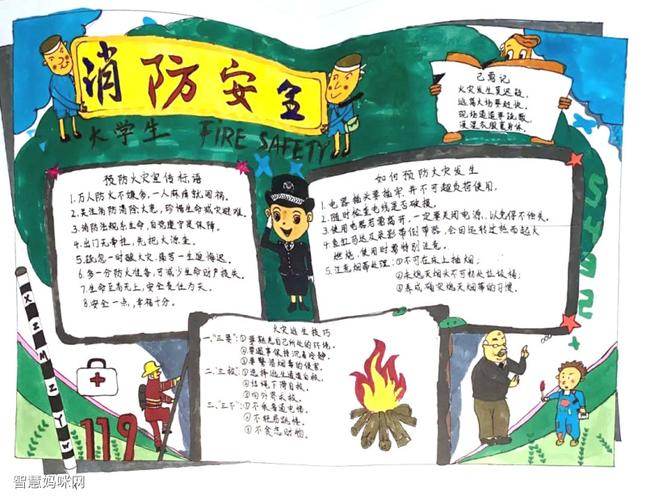 消防安全
大学生 FIRE SAFETY
己易记
火灾发生莫迟疑,
逃离火场要赶快,
现场通道要疏散
预防火灾宣传标语
1.万人防火不嫌多,一人麻痹就闯祸。
2.关注消防消除火患,珍惜生命减灾避难。
3.消防法规系生命,自觉遵守是保障。
4.出门无牵挂,先把火源查。
5.疏忽一时酿火灾,痛苦一生难悔迟。
6.多一份防火准备,可减少生命财产损失。
7.生命至高无上,安全责任为天。
8.安全一点,幸福十分。
如何预防火灾发生
1.电器插头要插牢,并不可超负荷使用。
2.随时检查电线是否破损。
3.使用电器若需离开,一定要关闭电源,以免得不偿失。
4.鱼缸马达及录影带倒带器,会因运转过热而起火
燃烧,使用时需特别注意。
5.注意烟蒂处理:①不可在床上抽烟;
②未熄灭烟火不可
③养成确实熄灭烟蒂的习惯。
火灾逃生技巧
一."三要":①要熟悉自己所处的环境。
②要遇事保持沉着冷静。
③要警惕烟毒的侵害。
二."三救":①选择逃生通道自救。
②结绳下滑自救。
③向外界求救。
三."三不":①不乘普通电梯。
②不轻易跳楼。
③不贪恋财物。
119
XZMZYW
智慧妈咪网